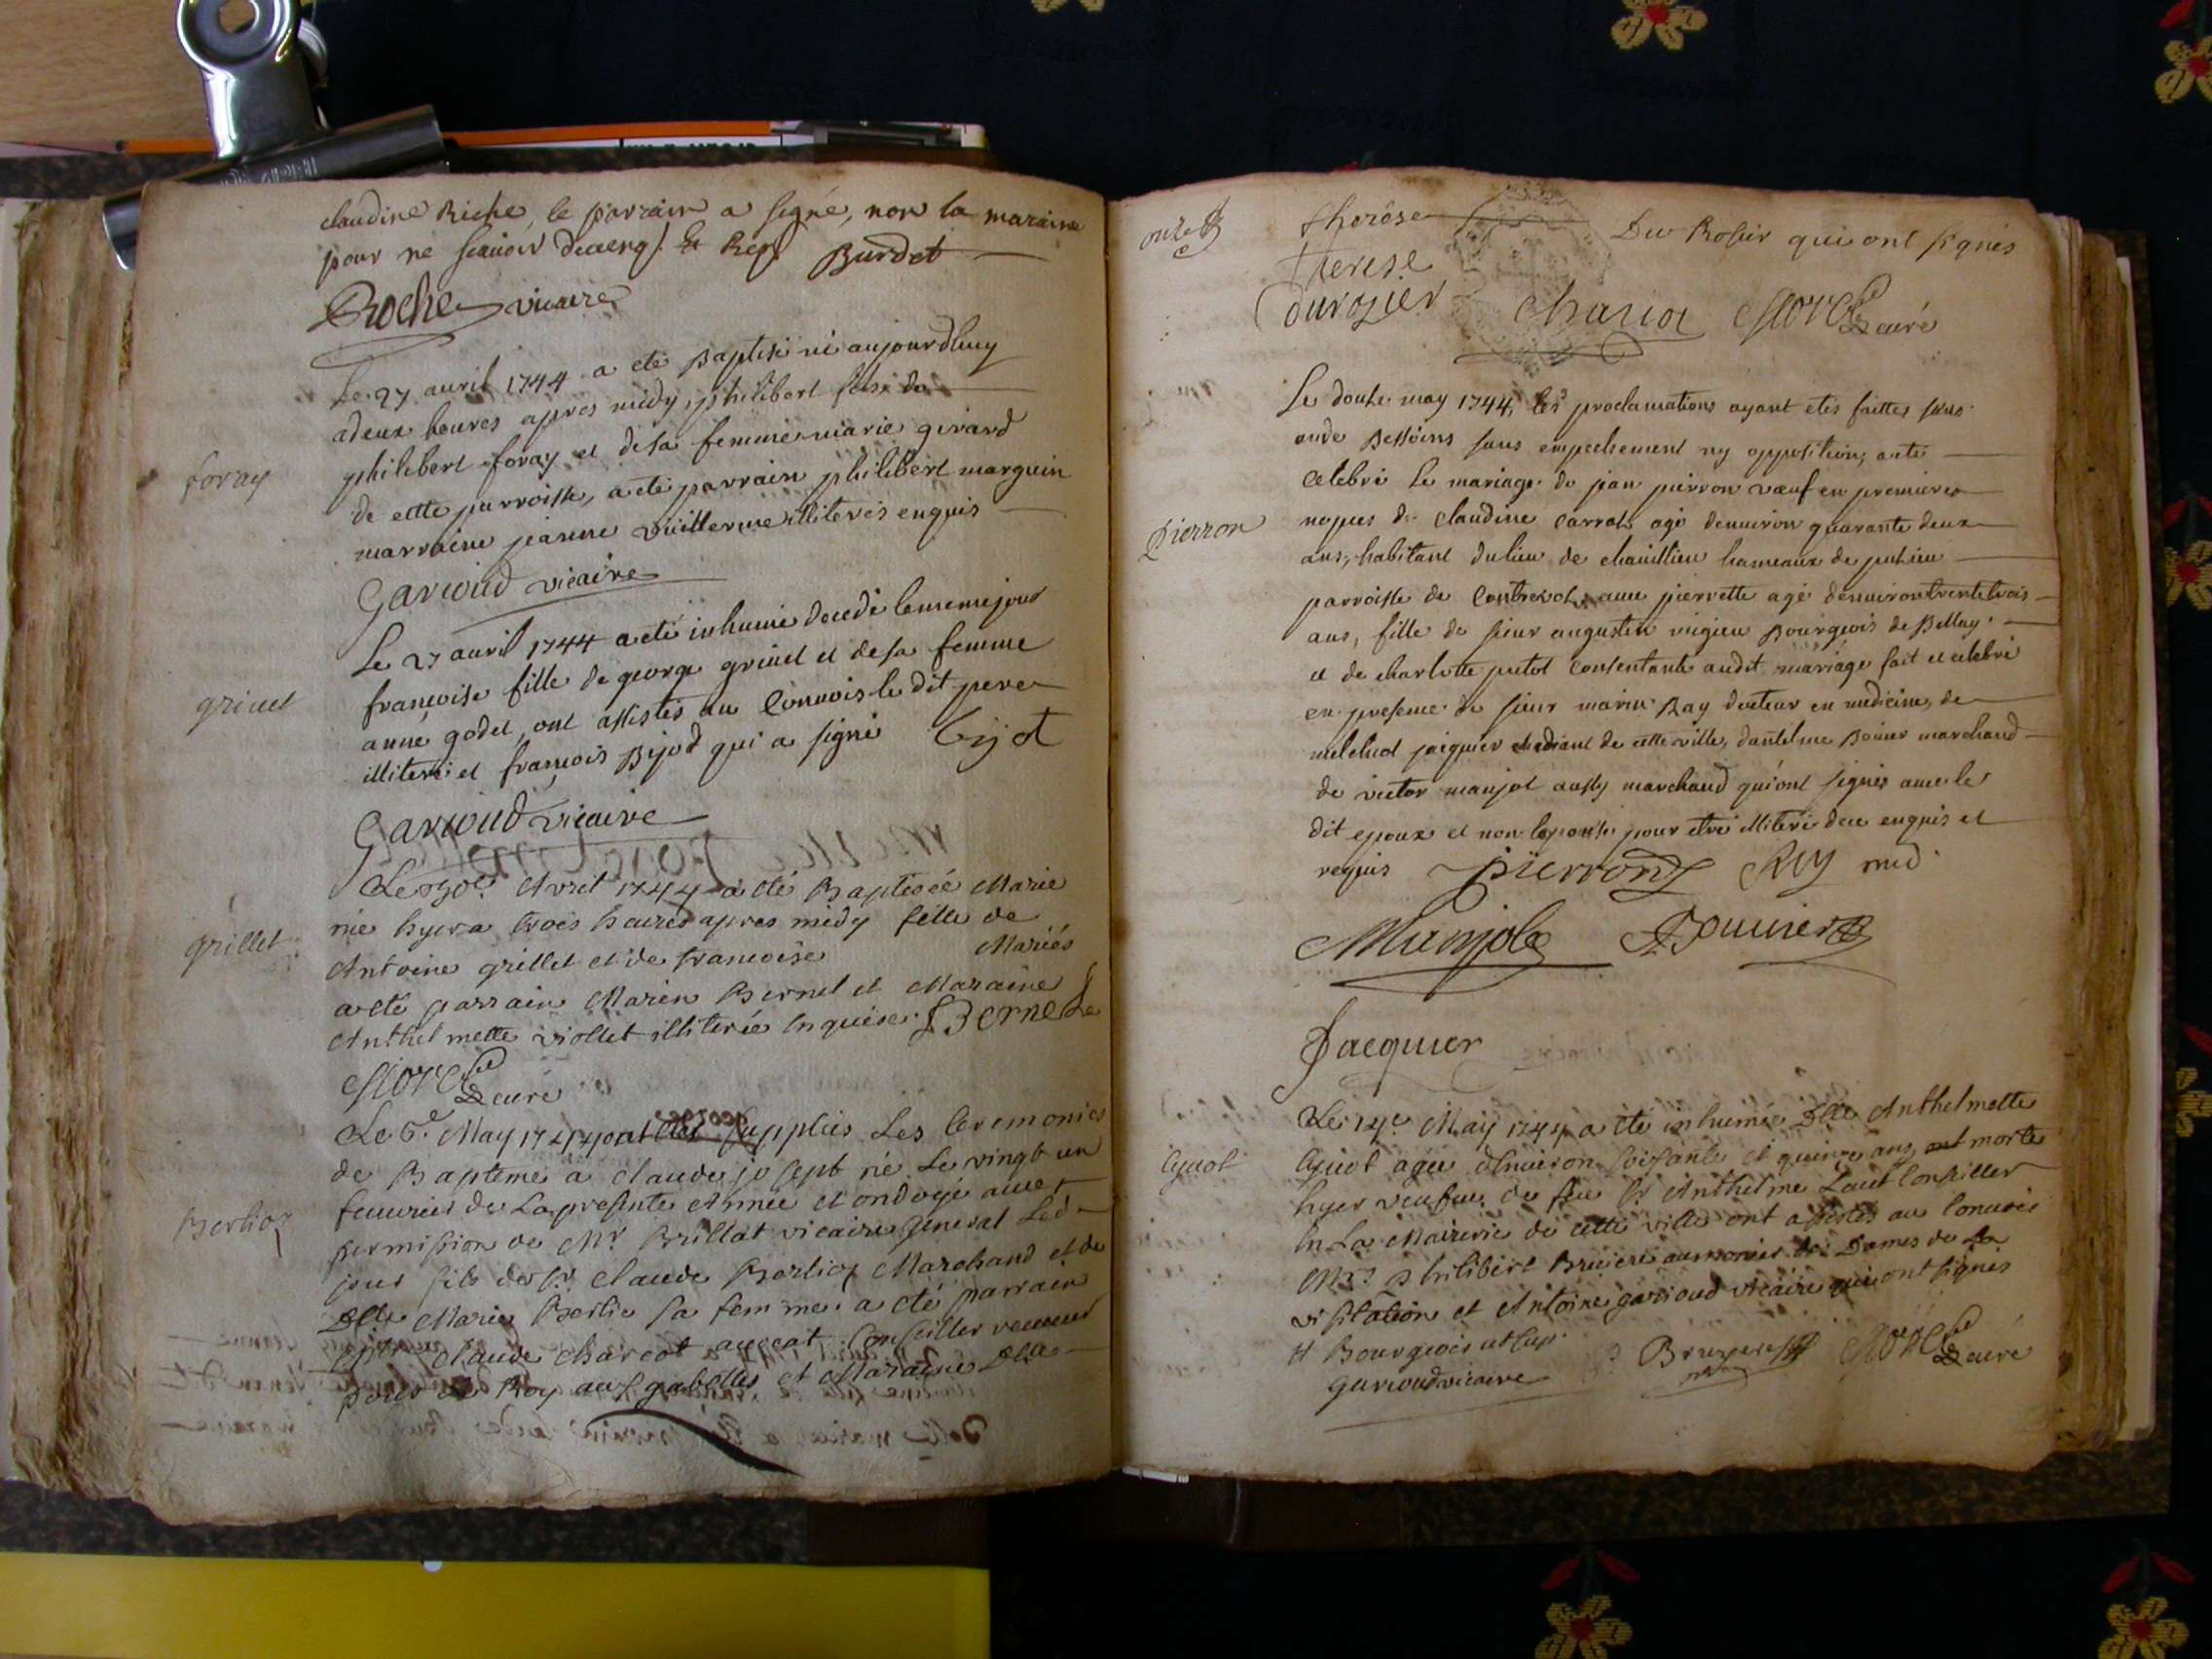 claudine Riche, le parrain a signé, non la maraine
pour ne scauoir de ce enq. et Req. Burdet
Roche vicaire
foray
Le 27 auril 1744 a eté Baptisé né aujourdhuy
a deux heures apres midy philibert fils de
philibert foray et de sa femme marie girard
de cette parroisse, a eté parrain philibert marguin
marraine jeanne vuillerme illiterés enquis
Garioud vicaire
griuet
Le 27 auril 1744 a eté inhumé decedé le meme jour
francoise fille de george griuet et de sa femme
anne godet, ont assistés au Conuois le dit pere
illiteré et francois Bijod qui a signé Bijot
Garioud vicaire
grillet
Le 30e Avril 1744 a eté Baptisée Marie
née hyer a trois heures apres midy fille de
Antoine grillet et de francoise Mariés
a eté parrain Marin Bernet et Maraine
Anthelmette viollet illiterée Enquise. Bernet
curé
Berlioz
Le May 1744 ont eté supplées Les Ceremonies
de Bapteme a claude josept né Le vingt un
feurier de La presente Année et ondoyé auec
permission de Mr. Brillat vicaire general Led.
jour fils de Sr. Claude Berlioz Marchand et de
Dlle Marie Bertie sa femme a eté parrain
claude charcot auocat Conseiller receueur
pour Le Roy aux gabelles et Maraine Dlle
Therese Du Rosier qui ont signés
Terese
Durozier
curé
Pierron
Le douze may 1744, les proclamations ayant etés faittes
sans empechement ny opposition, a eté
Celebré Le mariage de jean pierron vœuf en premieres
nopces de Claudine Carrat agé denuiron quarante deux
ans, habitant du lieu de hameaux de
parroisse de Contreuoz, auec pierrette agé denuiron trente trois
ans, fille de sieur augustin Bourgeois de Bellay
et de charlotte consentante audit mariage fait et celebré
en presence de sieur marin Ray docteur en medicine, de
melchiol jacquier de cette ville, danthelme Bonier marchand
de victor manjot aussy marchand qui ont signés auec le
dit epoux et non lepouse pour etre illiteré de ce enquis et
requis Pierron Rey med.
Munjot
Jacquier
Guiot
Le 14e May 1744 a eté inhumée Dlle Anthelmette
Guiot agée d'Enuiron soisante et quinze ans morte
hyer veufue de feu Sr Anthelme Conseiller
En La Mairerie de cette ville ont assistés au Conuois
Mrs. philibert Bruiere aumonier des Dames de La
visitation et Antoine garioud vicaire qui ont signés
Bourgeois P Bruyere curé
garioud vicaire